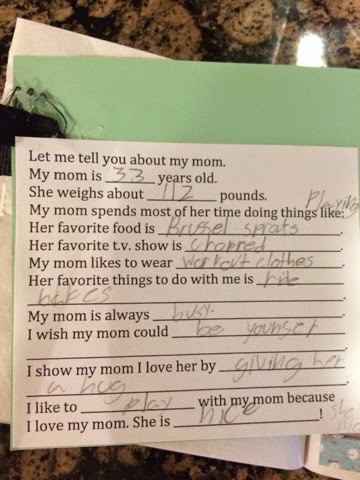 Let me tell you about my mom.
My mom is 33 years old.
She weighs about 112 pounds.
My mom spends most of her time doing things like: playing
Her favorite food is Brussel sprats.
Her favorite t.v. show is chopped.
My mom likes to wear workout clothes.
Her favorite things to do with me is ride
bikes.
My mom is always busy.
I wish my mom could be younger
I show my mom I love her by giving her
a hug.
I like to play with my mom because she
I love my mom. She is nice!